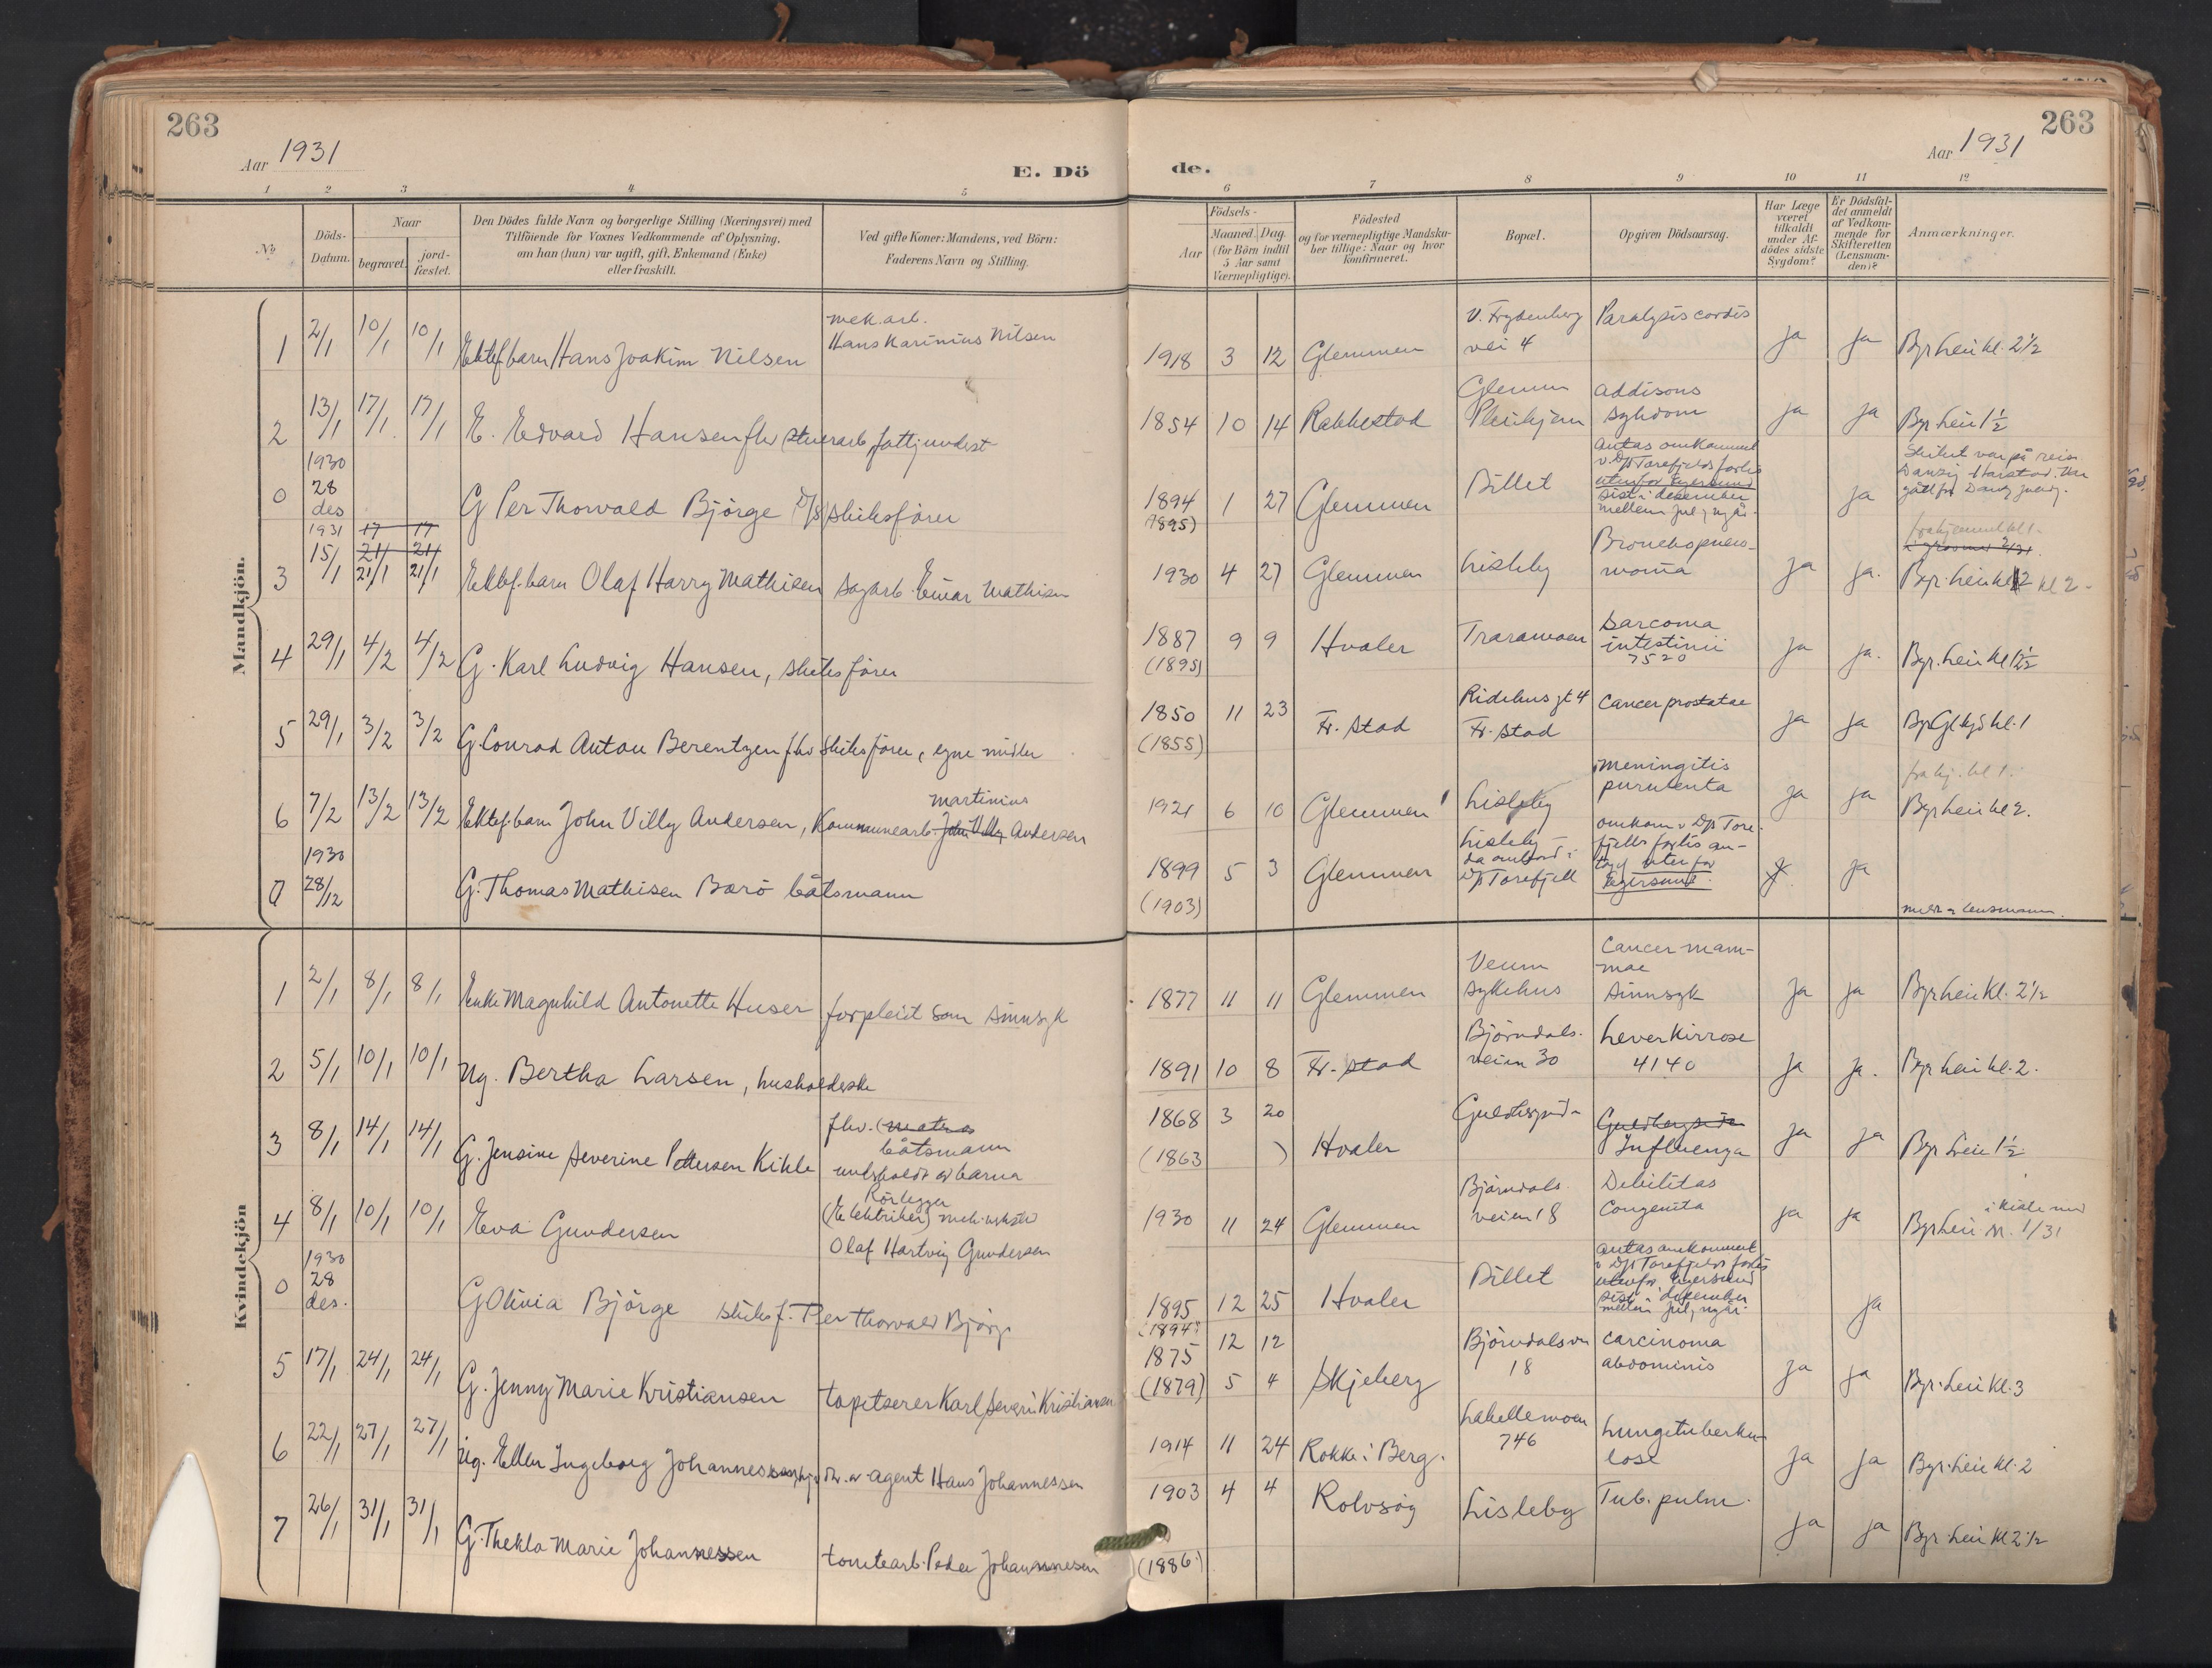 263
Aar 1931
E. Dö
de.
263
Aar 1931
1 2 3 4 5 6 7 8 9 10 11 12
No.
Döds-
Datum.
Naar
begravet.
jord-
fæstet.
Den Dödes fulde Navn og borgerlige Stilling (Næringsvei) med
Tilföiende for Voxnes Vedkommende af Oplysning,
om han (hun) var ugift, gift, Enkemand (Enke)
eller fraskilt.
Ved gifte Koner: Mandens, ved Börn:
Faderens Navn og Stilling.
Födsels-
Aar
Maaned. Dag.
(for Börn indtil
5 Aar samt
Værnepligtige).
Födested
og for værnepligtige Mandska-
ber tillige: Naar og hvor
konfirmeret.
Bopæl.
Opgiven Dödsaarsag.
Har Læge
været
tilkaldt
under Af-
dödes sidste
Sygdom?
Er Dödsfal-
det anmeldt
af Vedkom-
mende for
Skifteretten
(Lensman-
den)?
Anmærkninger.
Mandkjön.
1 2/1 10/1 10/1 Ektef. barn Hans Joakim Nilsen
mek. arb.
Hans Karinius Nilsen
1918 3 12 Glemmen
V. Frydenberg
vei 4
Paralysis cordis
ja ja Byr. hei kl. 2½
2 13/1 17/1 17/1 E. Edvard Hansen fhv stuerarb. fattigunderst
1854 10 14 Rakkestad
Glemm
Pleiehjem
Addisons
sykdom
ja ja Byr. hei 1½
1930
0 28
des
G Per Thorvald Björge D/S skibsförer
1894 1 27 Glemmen
(1895)
Dillet
Antas omkommet
v. D/S Torefjelds forlis
utenfor Egersund
sist i desember
mellem jul, nyår.
ja
Skibet var på reise
Danzig Harstad.
1931 17 17
3 15/1 21/1 21/1
21/1 21/1
Ektef. barn Olaf Harry Mathisen sagarb. Einar Mathisen
1930 4 27 Glemmen Lisleby
Bronchopneu-
monia
ja ja.
fra hjemmet kl 1.
Byr. hei kl 2 kl 2 -
4 29/1 4/2 4/2 G. Karl Ludvig Hansen, skibsförer
1887 9 9 Hvaler
(1895)
Traramoen
Sarcoma
intestinii
7520
ja ja. Byr. hei kl 1½
5 29/1 3/2 3/2 G. Conrad Anton Berentzen fhv skibsförer, egne midler
1850 11 23 Fr. stad
(1855)
Ridehusgt 4
Fr. stad
Cancer prostatae
ja ja Byr Gl kgd kl. 1
6 7/2 13/2 13/2 Ektef. barn John Villy Andersen, Kommunearb. John Villy Andersen
Martinius
1921 6 10 Glemmen Lisleby
Meningitis
purulenta
ja ja
fra hj. kl 1.
Byr hei kl 2.
1930
0 28/12 G. Thomas Mathisen Barö båtsmann
1899 5 3 Glemmen
(1903)
Lisleby -
da ombord i
D/S Torefjell
omkom v D/S Tore-
fjells forlis an-
tagl utenfor
Egersund.
ja
lensmann.
Kvindekjön
1 2/1 8/1 8/1 Enke Magnhild Antonette Huser forpleiet som sinnsyk
1877 11 11 Glemmen
Veum
sykehus
Cancer mam-
mae
Sinnsyk
ja ja Byr hei kl. 2½
2 5/1 10/1 10/1 Ug. Bertha Larsen, husholderske
1891 10 8 Fr. stad
Björndals-
veien 30
Leverkirrose
4140
ja ja. Byr hei kl. 2.
3 8/1 14/1 14/1 G. Jensine Severine Pettersen Kihle
fhv. (matros
båtsmann
underholdt av barna
1868 3 20
(1863 ) Hvaler
Influenza
ja ja Byr hei 1½
4 8/1 10/1 10/1 Eva Gundersen
Rörlegger
(Elektriker)
Olaf Hartvig Gundersen
1930 11 24 Glemmen
Björndals
veien 18
Debilitas
Congenita
ja ja
i kiste med
Byr hei nr. 1/31
1930
0 28
des.
G Olivia Björge skibsf. Per Thorvald Björge
1895 12 25 Hvaler
(1894?
Dillet
Antas omkommet
v D/S Torefjelds forlis
utenfor Egersund
sist i desember
mellem jul, nyår.
ja
5 17/1 24/1 24/1 G. Jenny Marie Kristiansen tapetserer Karl Severin Kristiansen
1875 12 12
(1879) 5 4 Skjeberg
Björndalsvn
18
Carcinoma
abdominis
ja ja Byr. hei kl. 3
6 22/1 27/1 27/1 Ug. Ellen Ingeborg Johannessen, hjv. D. av agent Hans Johannessen
1914 11 24 Rokke i Berg.
Labellemoen
746
Lungetuberku-
lose
ja ja Byr. hei kl. 2
7 26/1 31/1 31/1 G. Thekla Marie Johannessen tomtearb. Peder Johannessen
1903 4 4 Rolvsöy Lisleby Tub. pulm.
(1886.)
ja ja Byr. hei kl 2½